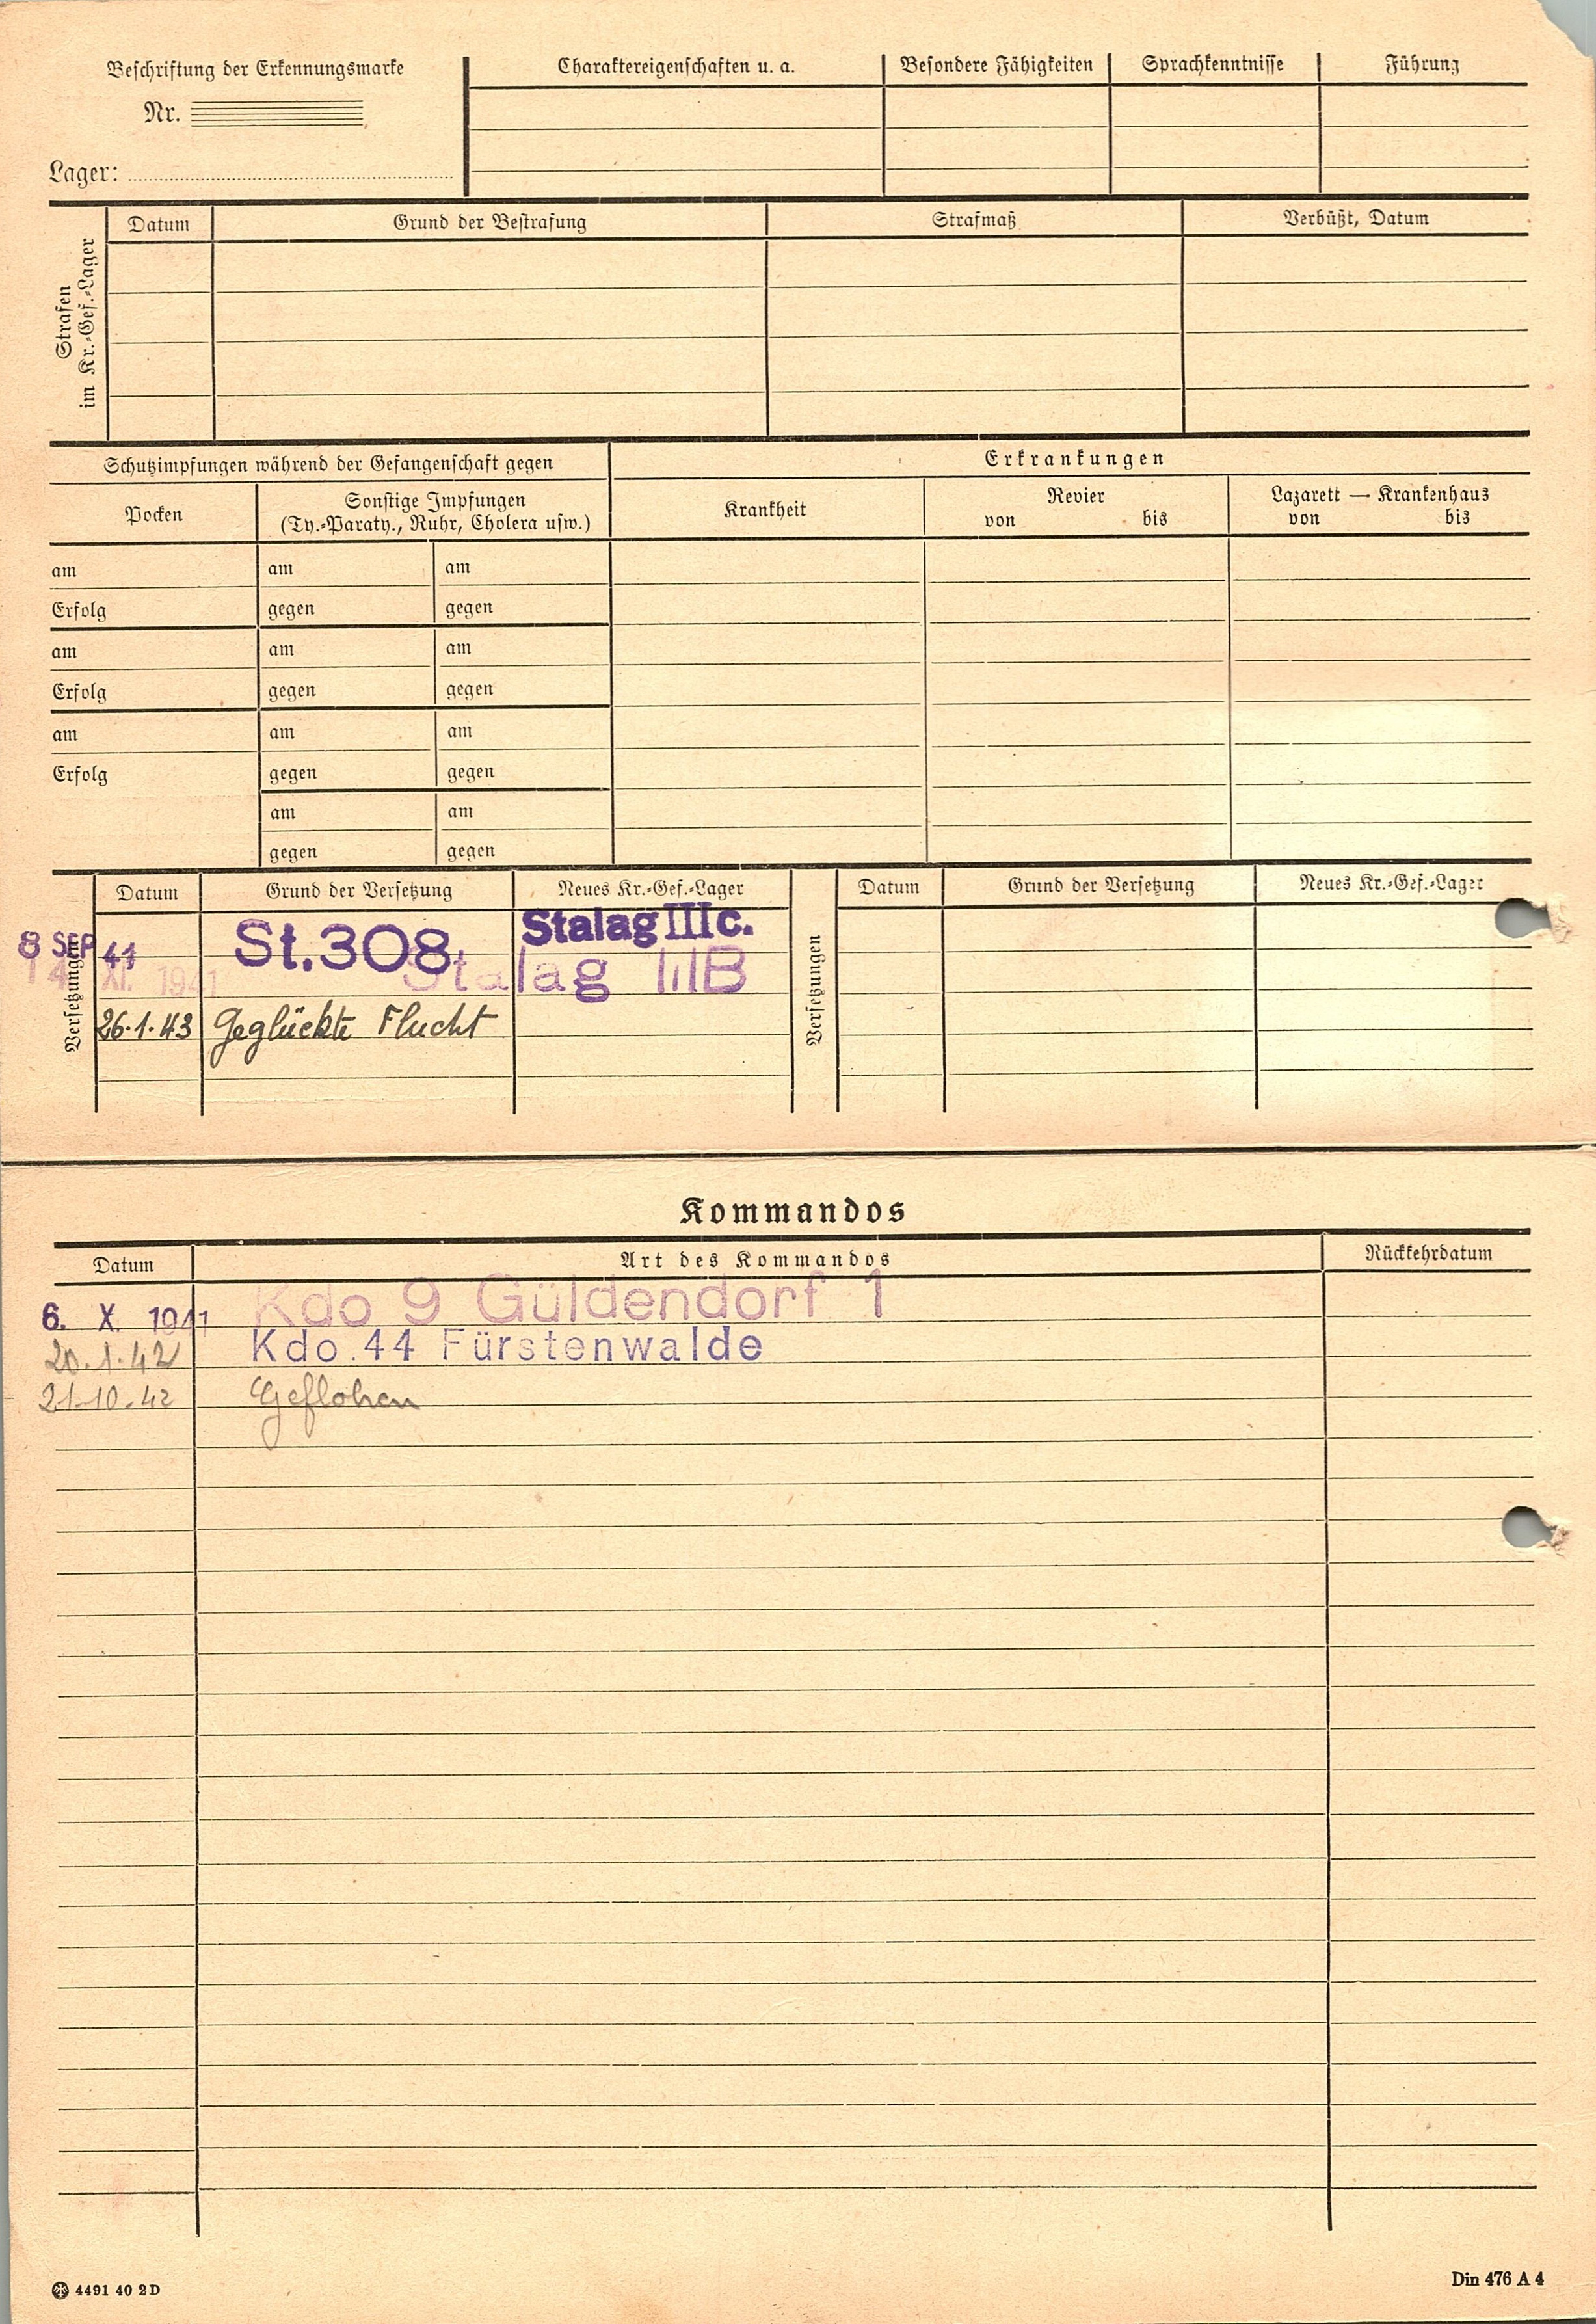 Beschriftung der Erkennungsmarke
Nr.
Lager:
Charaktereigenschaften u. a.
Besondere Fähigkeiten
Sprachkenntnisse
Führung
Strafen
im Kr.-Gef.-Lager
Datum
Grund der Bestrafung
Strafmaß
Verbüßt, Datum
Schutzimpfungen während der Gefangenschaft gegen
Erkrankungen
Pocken
Sonstige Impfungen
(Ty.-Paraty., Ruhr, Cholera usw.)
Krankheit
Revier
von bis
Lazarett — Krankenhaus
von bis
am am am
Erfolg gegen gegen
am am am
Erfolg gegen gegen
am am am
Erfolg gegen gegen
am am
gegen gegen
Versetzungen
Datum Grund der Versetzung Neues Kr.-Gef.-Lager
8 SEP 41 St.308 Stalag IIIc.
14 XI. 1941 Stalag IIIB
26.1.43 Geglückte Flucht
Versetzungen
Datum Grund der Versetzung Neues Kr.-Gef.-Lager
Kommandos
Datum Art des Kommandos Rückkehrdatum
6. X. 1941 Kdo 9 Güldendorf 1
20.1.42 Kdo.44 Fürstenwalde
21.10.42 Geflohen
4491 40 2D
Din 476 A 4